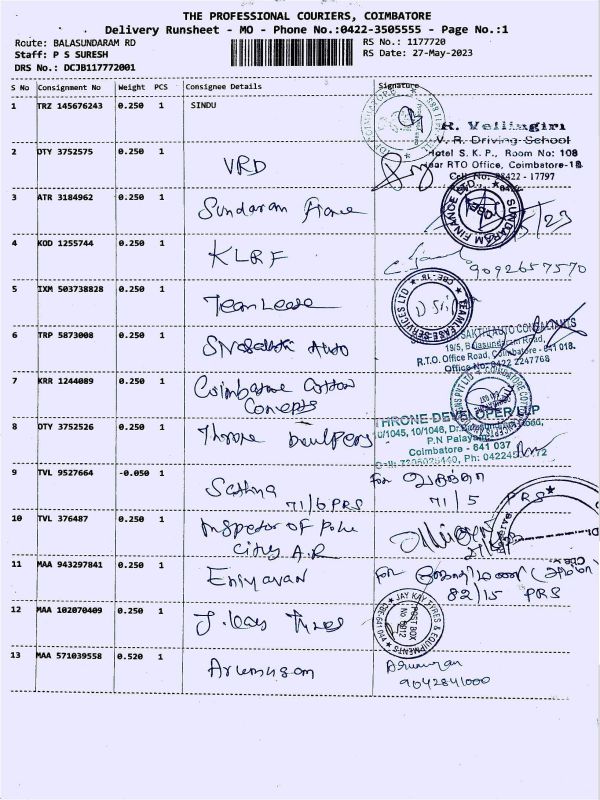 THE PROFESSIONAL COURIERS, COIMBATORE
Delivery Runsheet - MO - Phone No.:0422-3505555 - Page No.:1
Route: BALASUNDARAM RD
RS No.: 1177720
Staff: P S SURESH
RS Date: 27-May-2023
DRS No.: DCJB117772001
S No Consignment No Weight PCS Consignee Details Signature
1 TRZ 145676243 0.250 1 SINDU
R. Vellingiri
V. R. Driving School
Hotel S. K. P., Room No: 108
Near RTO Office, Coimbatore-18
Cell No: 98422 - 17797
2 DTY 3752575 0.250 1 VRD
3 ATR 3184962 0.250 1 Sundaram Finance
SUNDARAM FINANCE LTD.
4 KOD 1255744 0.250 1 KLRF
9092657570
5 IXM 503738828 0.250 1 TeamLease
TEAMLEASE SERVICES LTD
CBE-18
6 TRP 5873008 0.250 1 SN Sakthi Auto
SAKTHI AUTO CONSULTANTS
19/5, Balasundaram Road,
R.T.O. Office Road, Coimbatore - 641 018.
Office No: 0422 2247768
7 KRR 1244089 0.250 1 Coimbatore Cotton
Concepts
8 DTY 3752526 0.250 1 Throne
THRONE DEVELOPER LLP
10/1045, 10/1046, Road,
P.N Palayam
Coimbatore - 641 037
9 TVL 9527664 -0.050 1 Sathya
71/6 PRS
For
71/5 PRS
10 TVL 376487 0.250 1 Inspector of Police
City A.R
11 MAA 943297841 0.250 1 Eniyavan
For
82/15 PRS
12 MAA 102070409 0.250 1 J.Kay Tyres
JAY KAY TYRES & EQUIPMENTS
POST BOX
13 MAA 571039558 0.520 1 Arumugam
9042841000